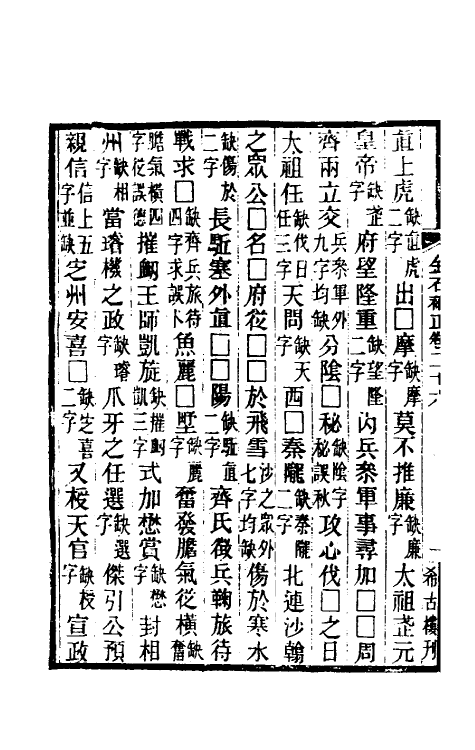 金石補正卷二十六 一 希古樓刊
直上虎缺直虎二字出□摩缺摩字莫不推廉缺廉字太祖武元
皇帝缺武字府望隆重缺望隆二字內兵叅軍事尋加□□周
齊兩立交兵叅軍外九字均缺分陰□秘缺陰字秘誤秋攻心伐□之日
太祖任缺伐日任三字天問缺天字西□秦隴缺秦隴二字北連沙翰
之眾公□名□府從□□於飛雪沙之眾外七字均缺傷於寒水
缺傷於二字長驅塞外直□□陽缺驅直二字齊氏徵兵鞠旅待
戰求□缺齊兵旅待四字求誤木魚麗□墅缺麗字奮發膽氣從橫缺奮
膽氣橫四字從誤德摧衂王師凱旋缺摧衂凱三字式加懋賞缺懋字封相
州缺相字當璿機之政缺璿字爪牙之任選缺選字傑引公預
親信信上五字並缺定州安喜□缺定喜二字又授天官缺授字宣政